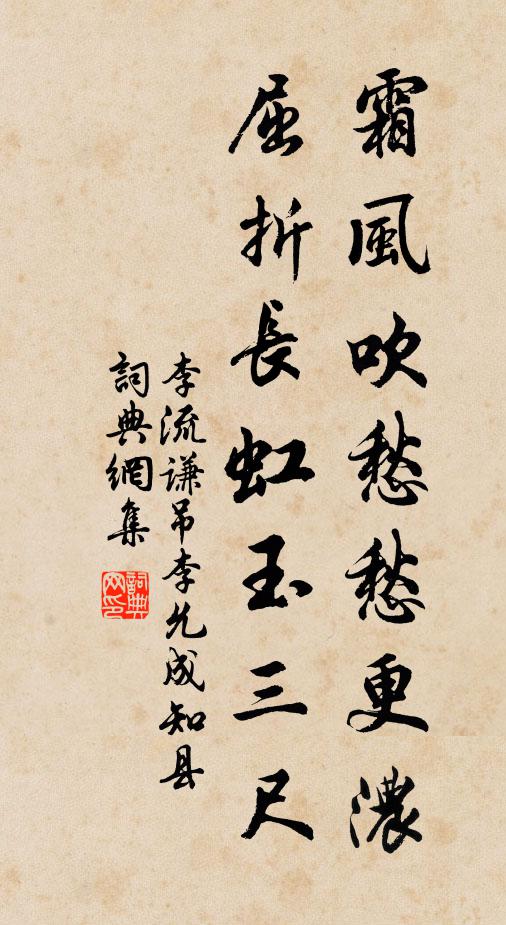 霜風吹愁愁更濃
屈折長虹玉三尺
李流谦吊李允成知县
詞典網集
詞典
网印